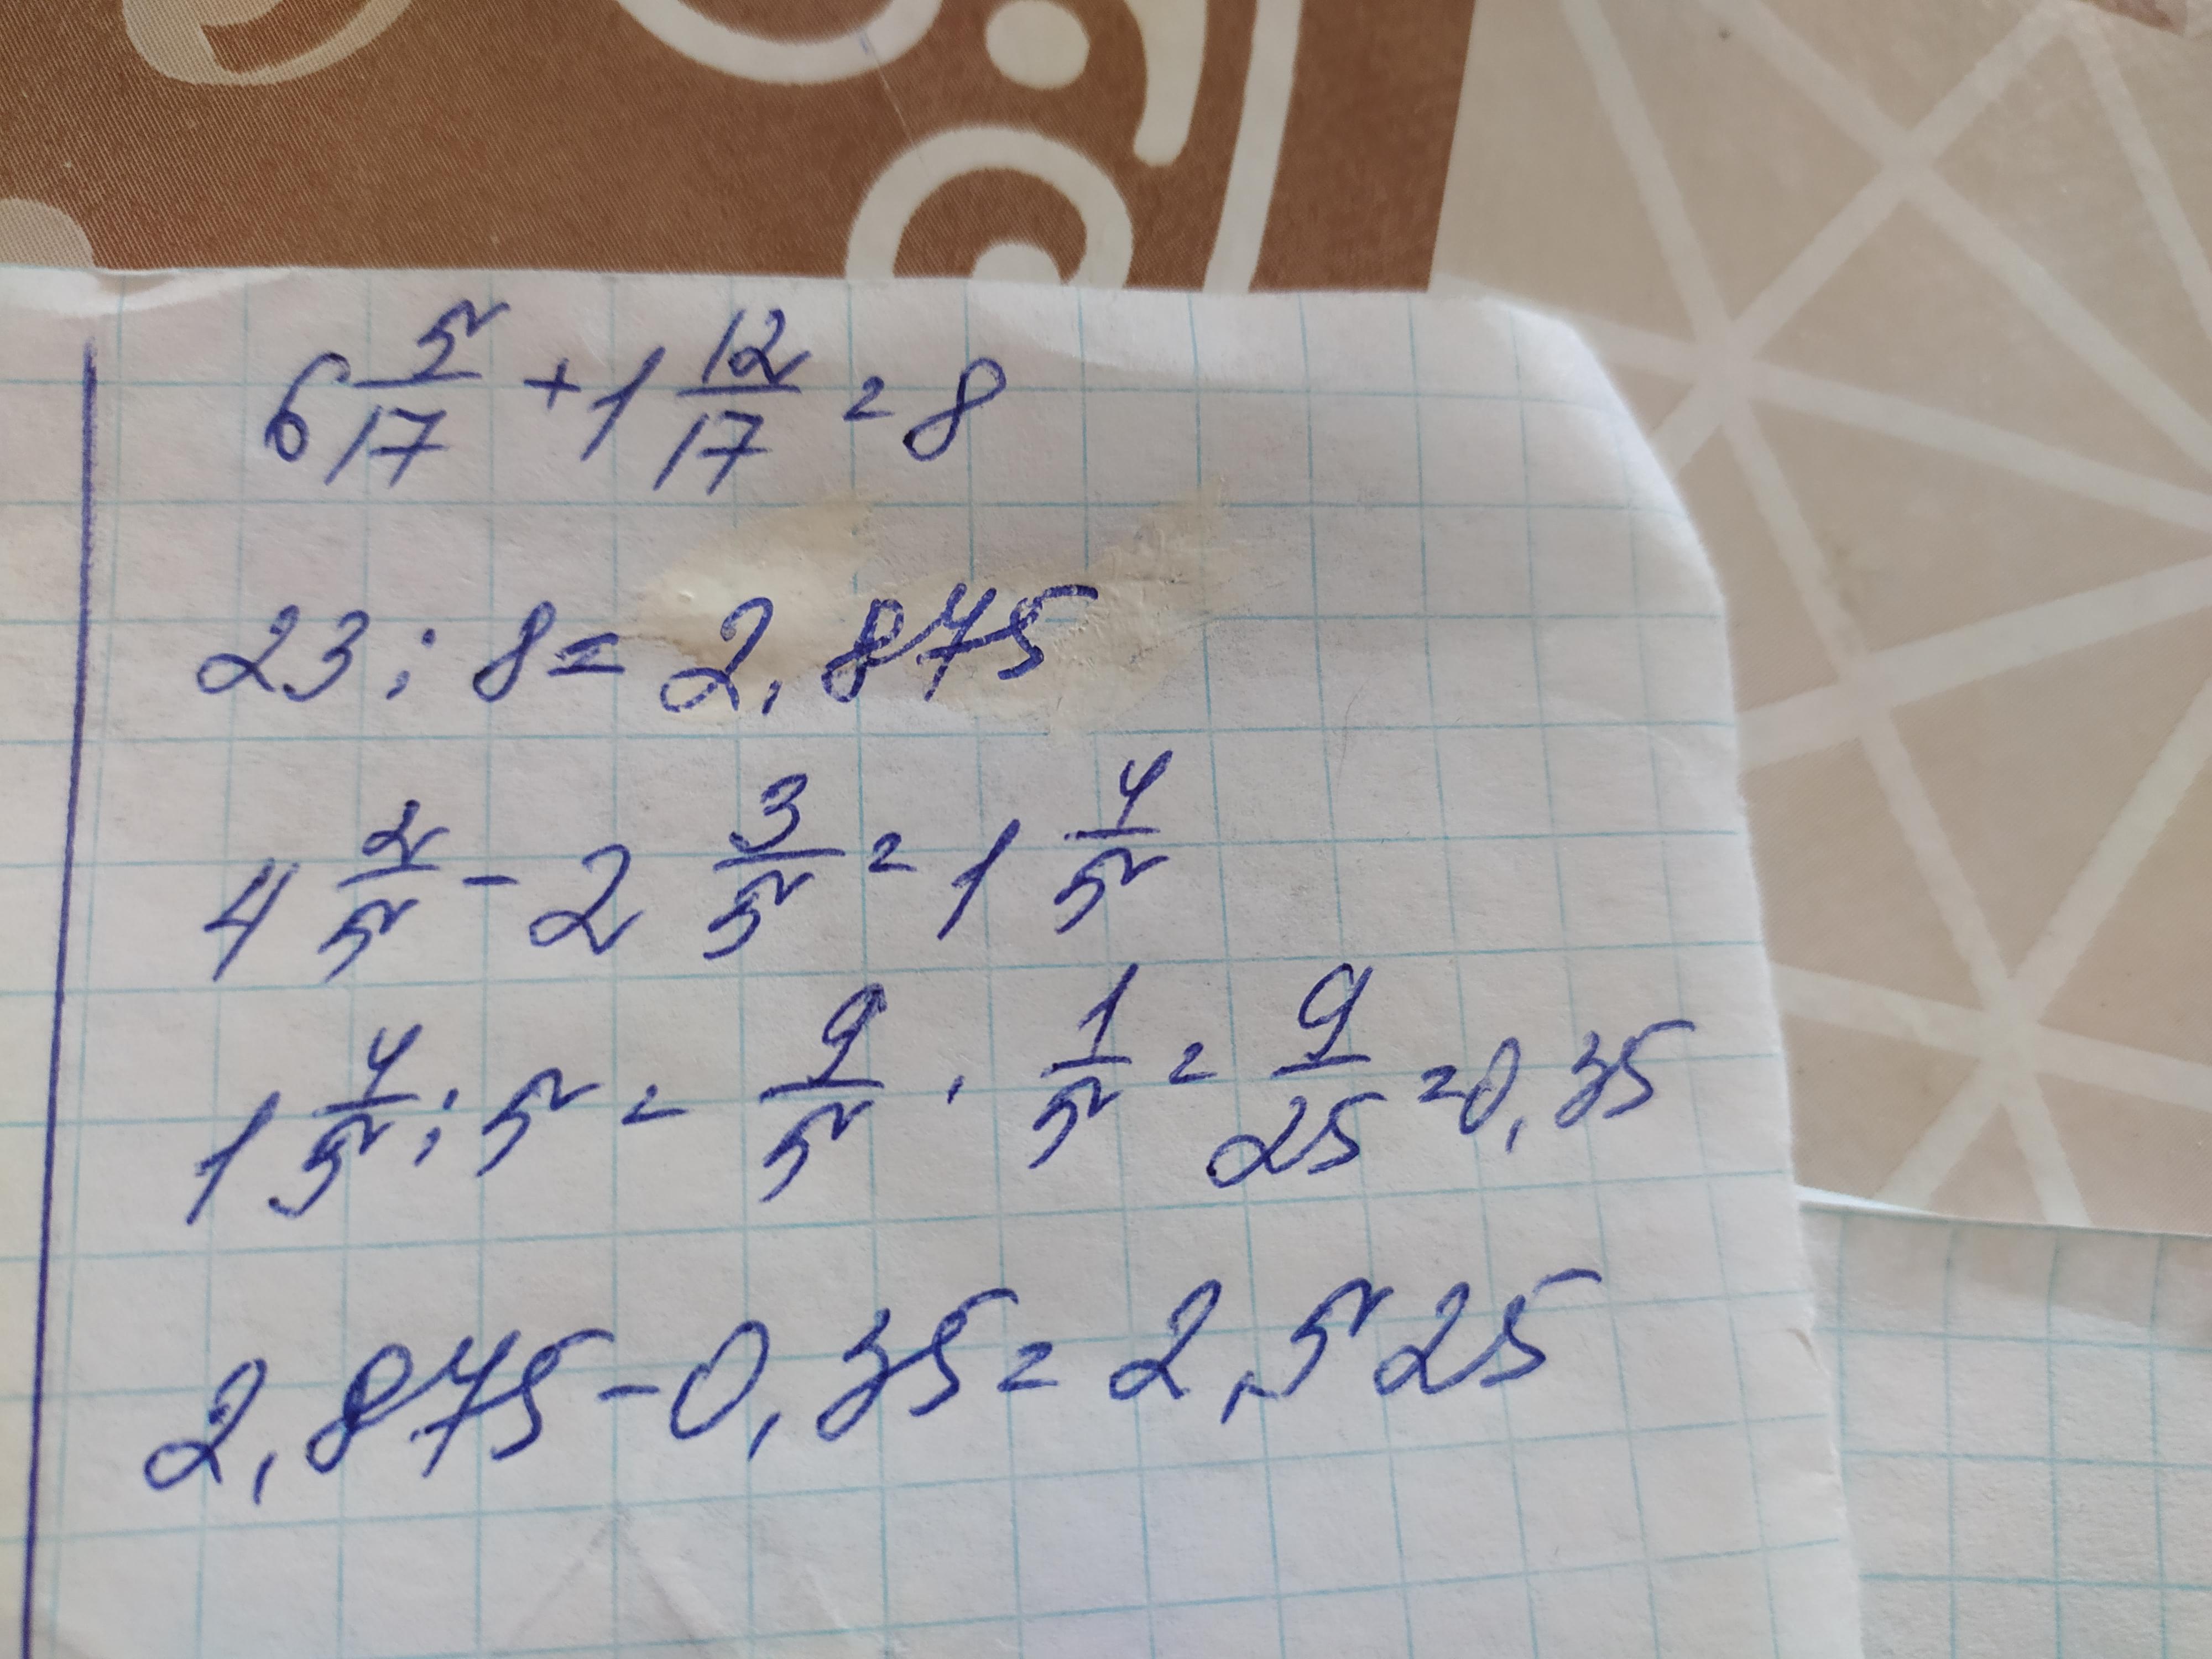 6 5/17 + 1 12/17 = 8
23 : 8 = 2,875
4 2/5 - 2 3/5 = 1 4/5
1 4/5 : 5 = 9/5 · 1/5 = 9/25 = 0,35
2,875 - 0,35 = 2,525